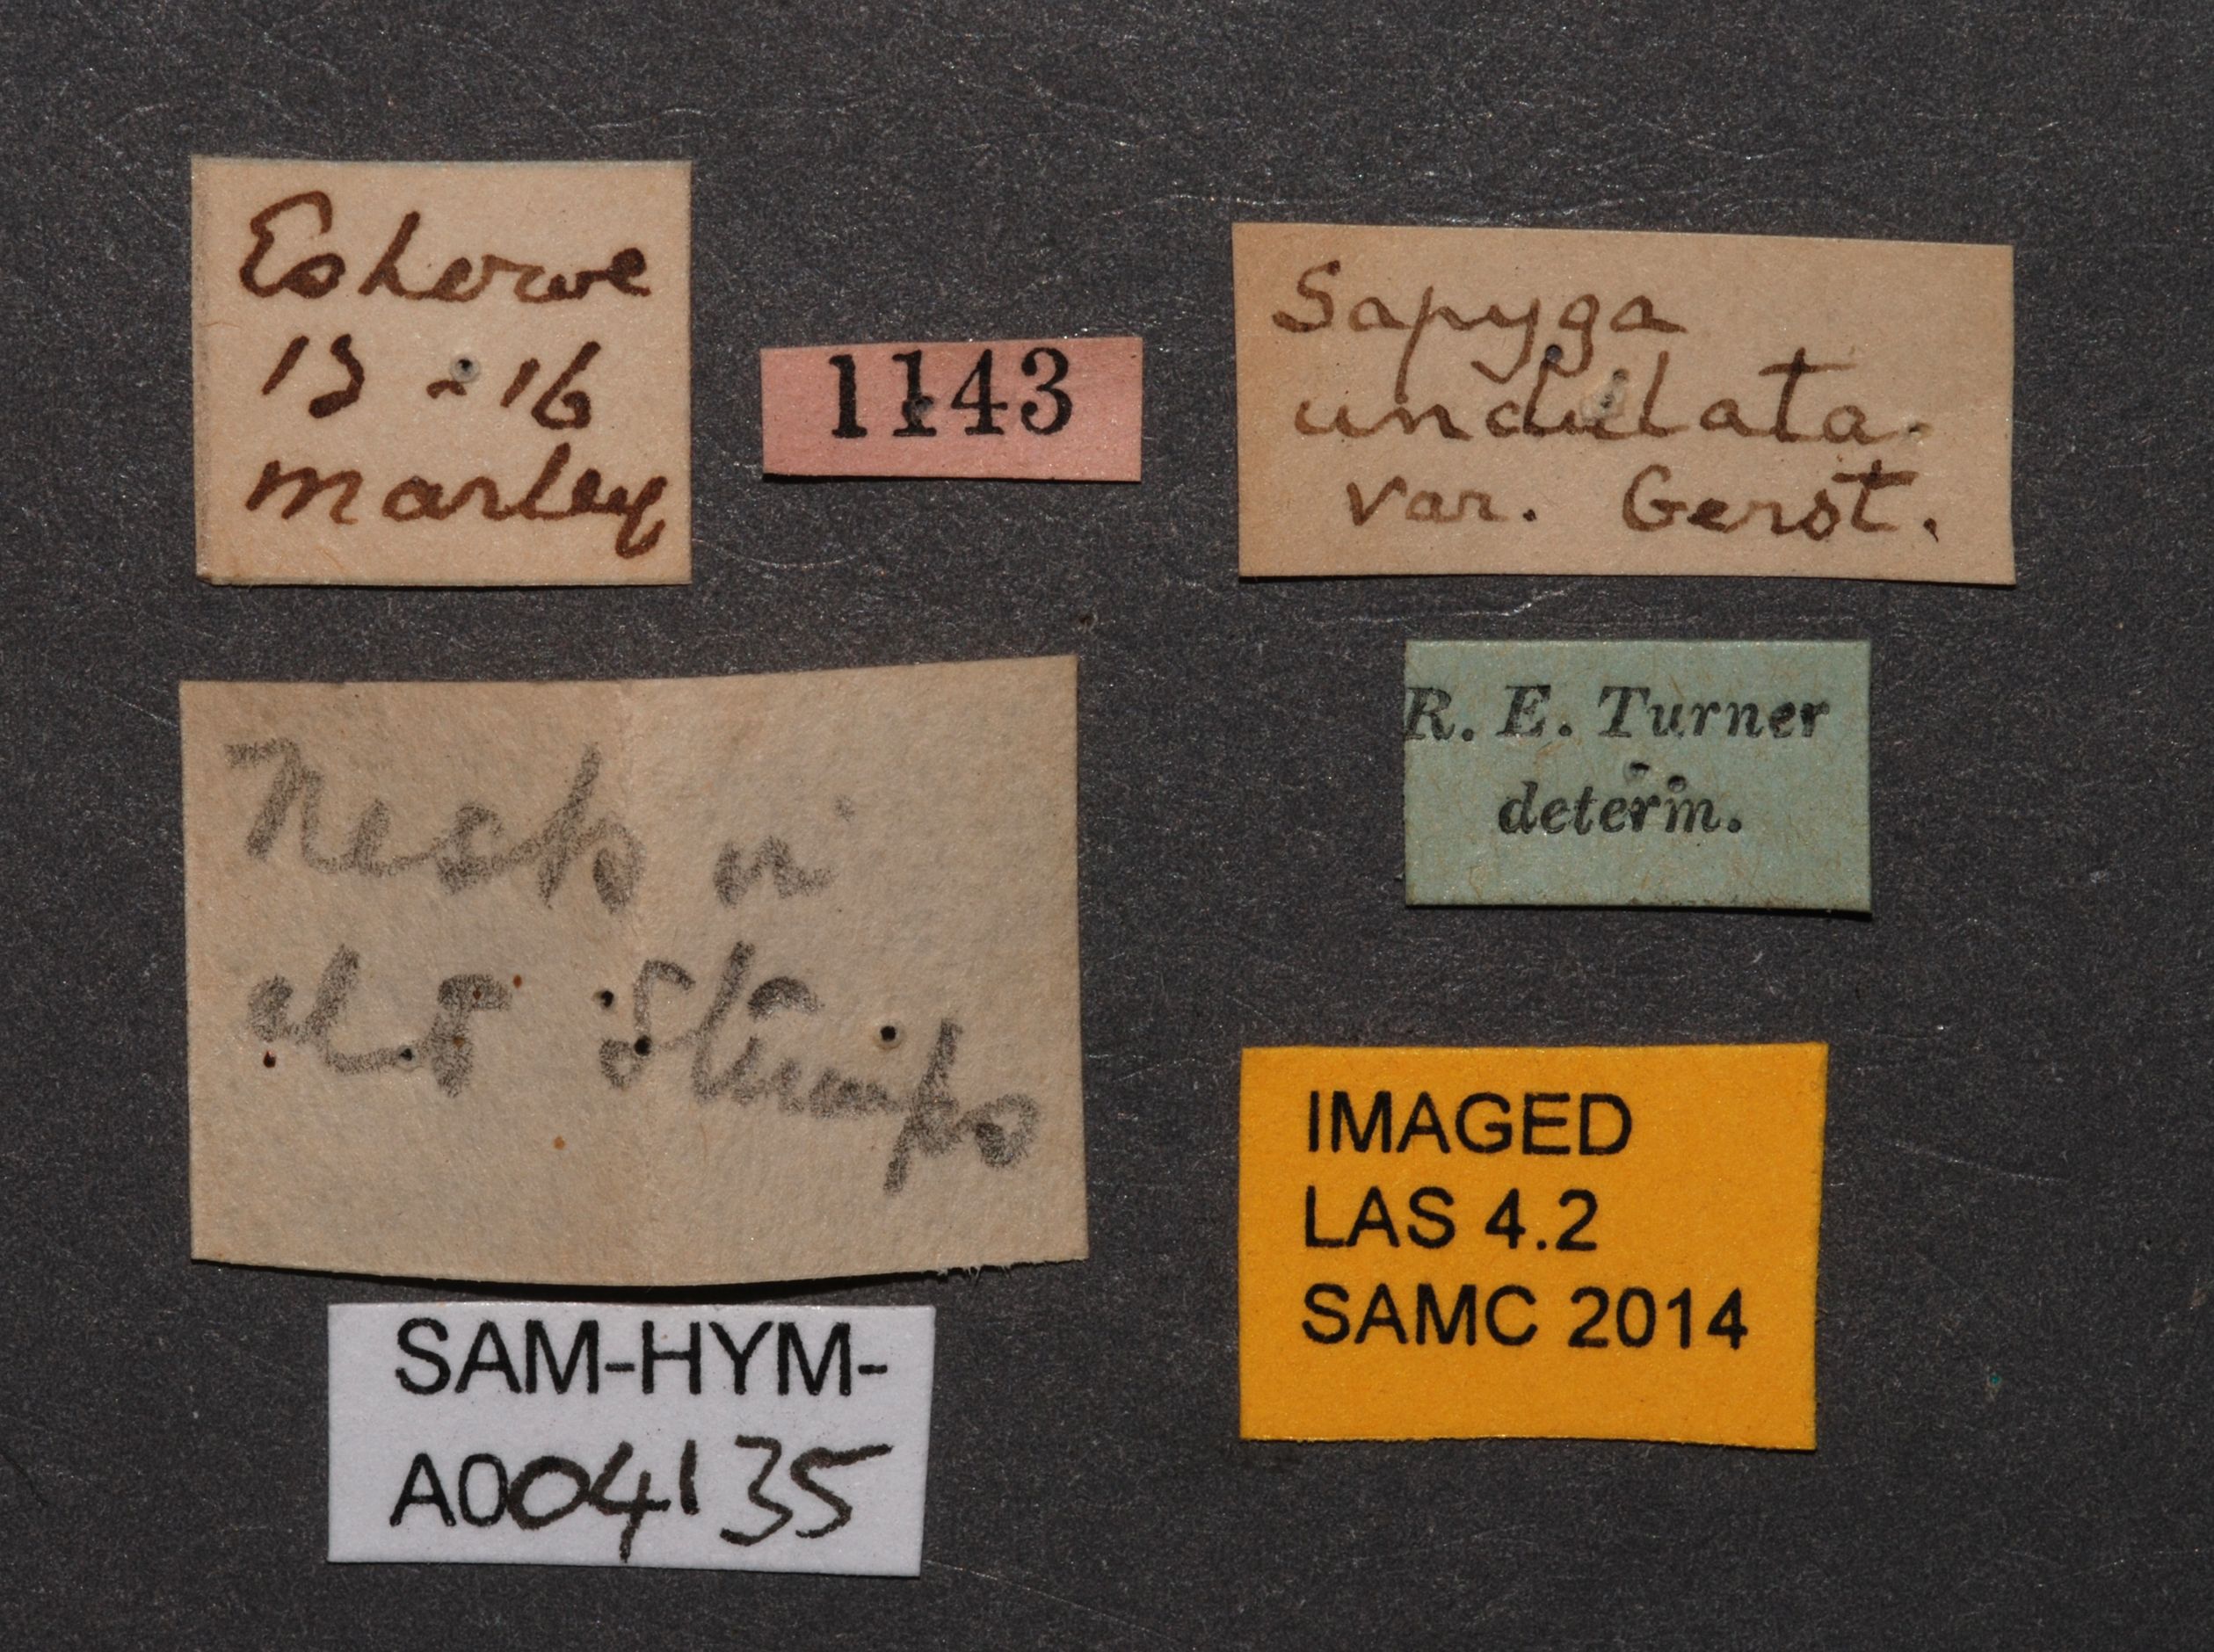 Eshowe
13 - 16
Marley
1143
Sapyga
undulata.
var. Gerst.
Nests in
old Stumps
R. E. Turner
determ.
IMAGED
LAS 4.2
SAMC 2014
SAM-HYM-
A004135